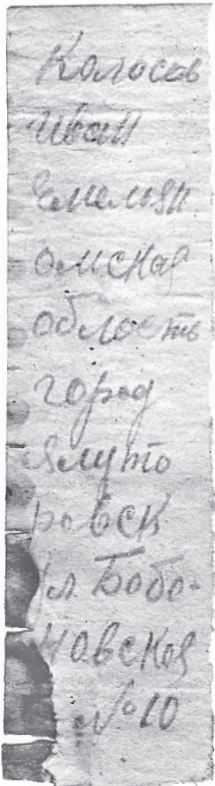 Колосов
Иван
Емелян
омская
область
город
Ялуто
ровск
ул. Бобо-
новская
№ 10